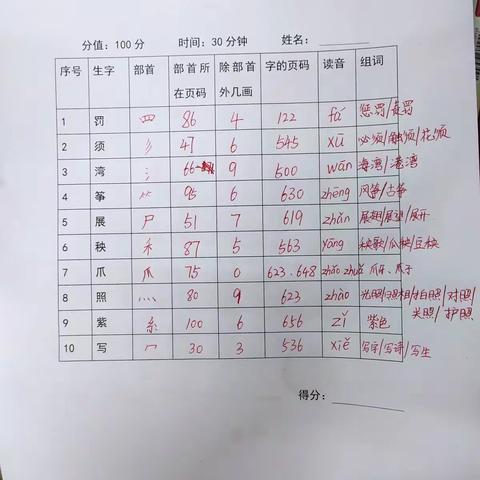 分值：100分 时间：30分钟 姓名：
序号 生字 部首 部首所在页码 除部首外几画 字的页码 读音 组词
1 罚 罒 86 4 122 fá 惩罚/责罚
2 须 彡 47 6 545 xū 必须/触须/花须
3 湾 氵 66 9 500 wān 海湾/港湾
4 筝 ⺮ 95 6 630 zhēng 风筝/古筝
5 展 尸 51 7 619 zhǎn 展翅/展望/展开
6 秧 禾 87 5 563 yāng 秧歌/瓜秧/豆秧
7 爪 爪 75 0 623、648 zhǎo zhuǎ 爪牙、爪子
8 照 灬 80 9 623 zhào 光照/照相/拍照/对照/
关照/护照
9 紫 糸 100 6 656 zǐ 紫色
10 写 冖 30 3 536 xiě 写字/写诗/写生
得分：